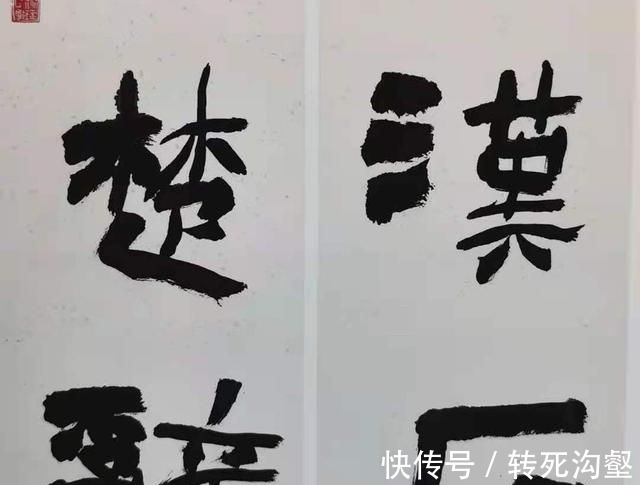 漢
楚辭
快传号 / 转死沟壑